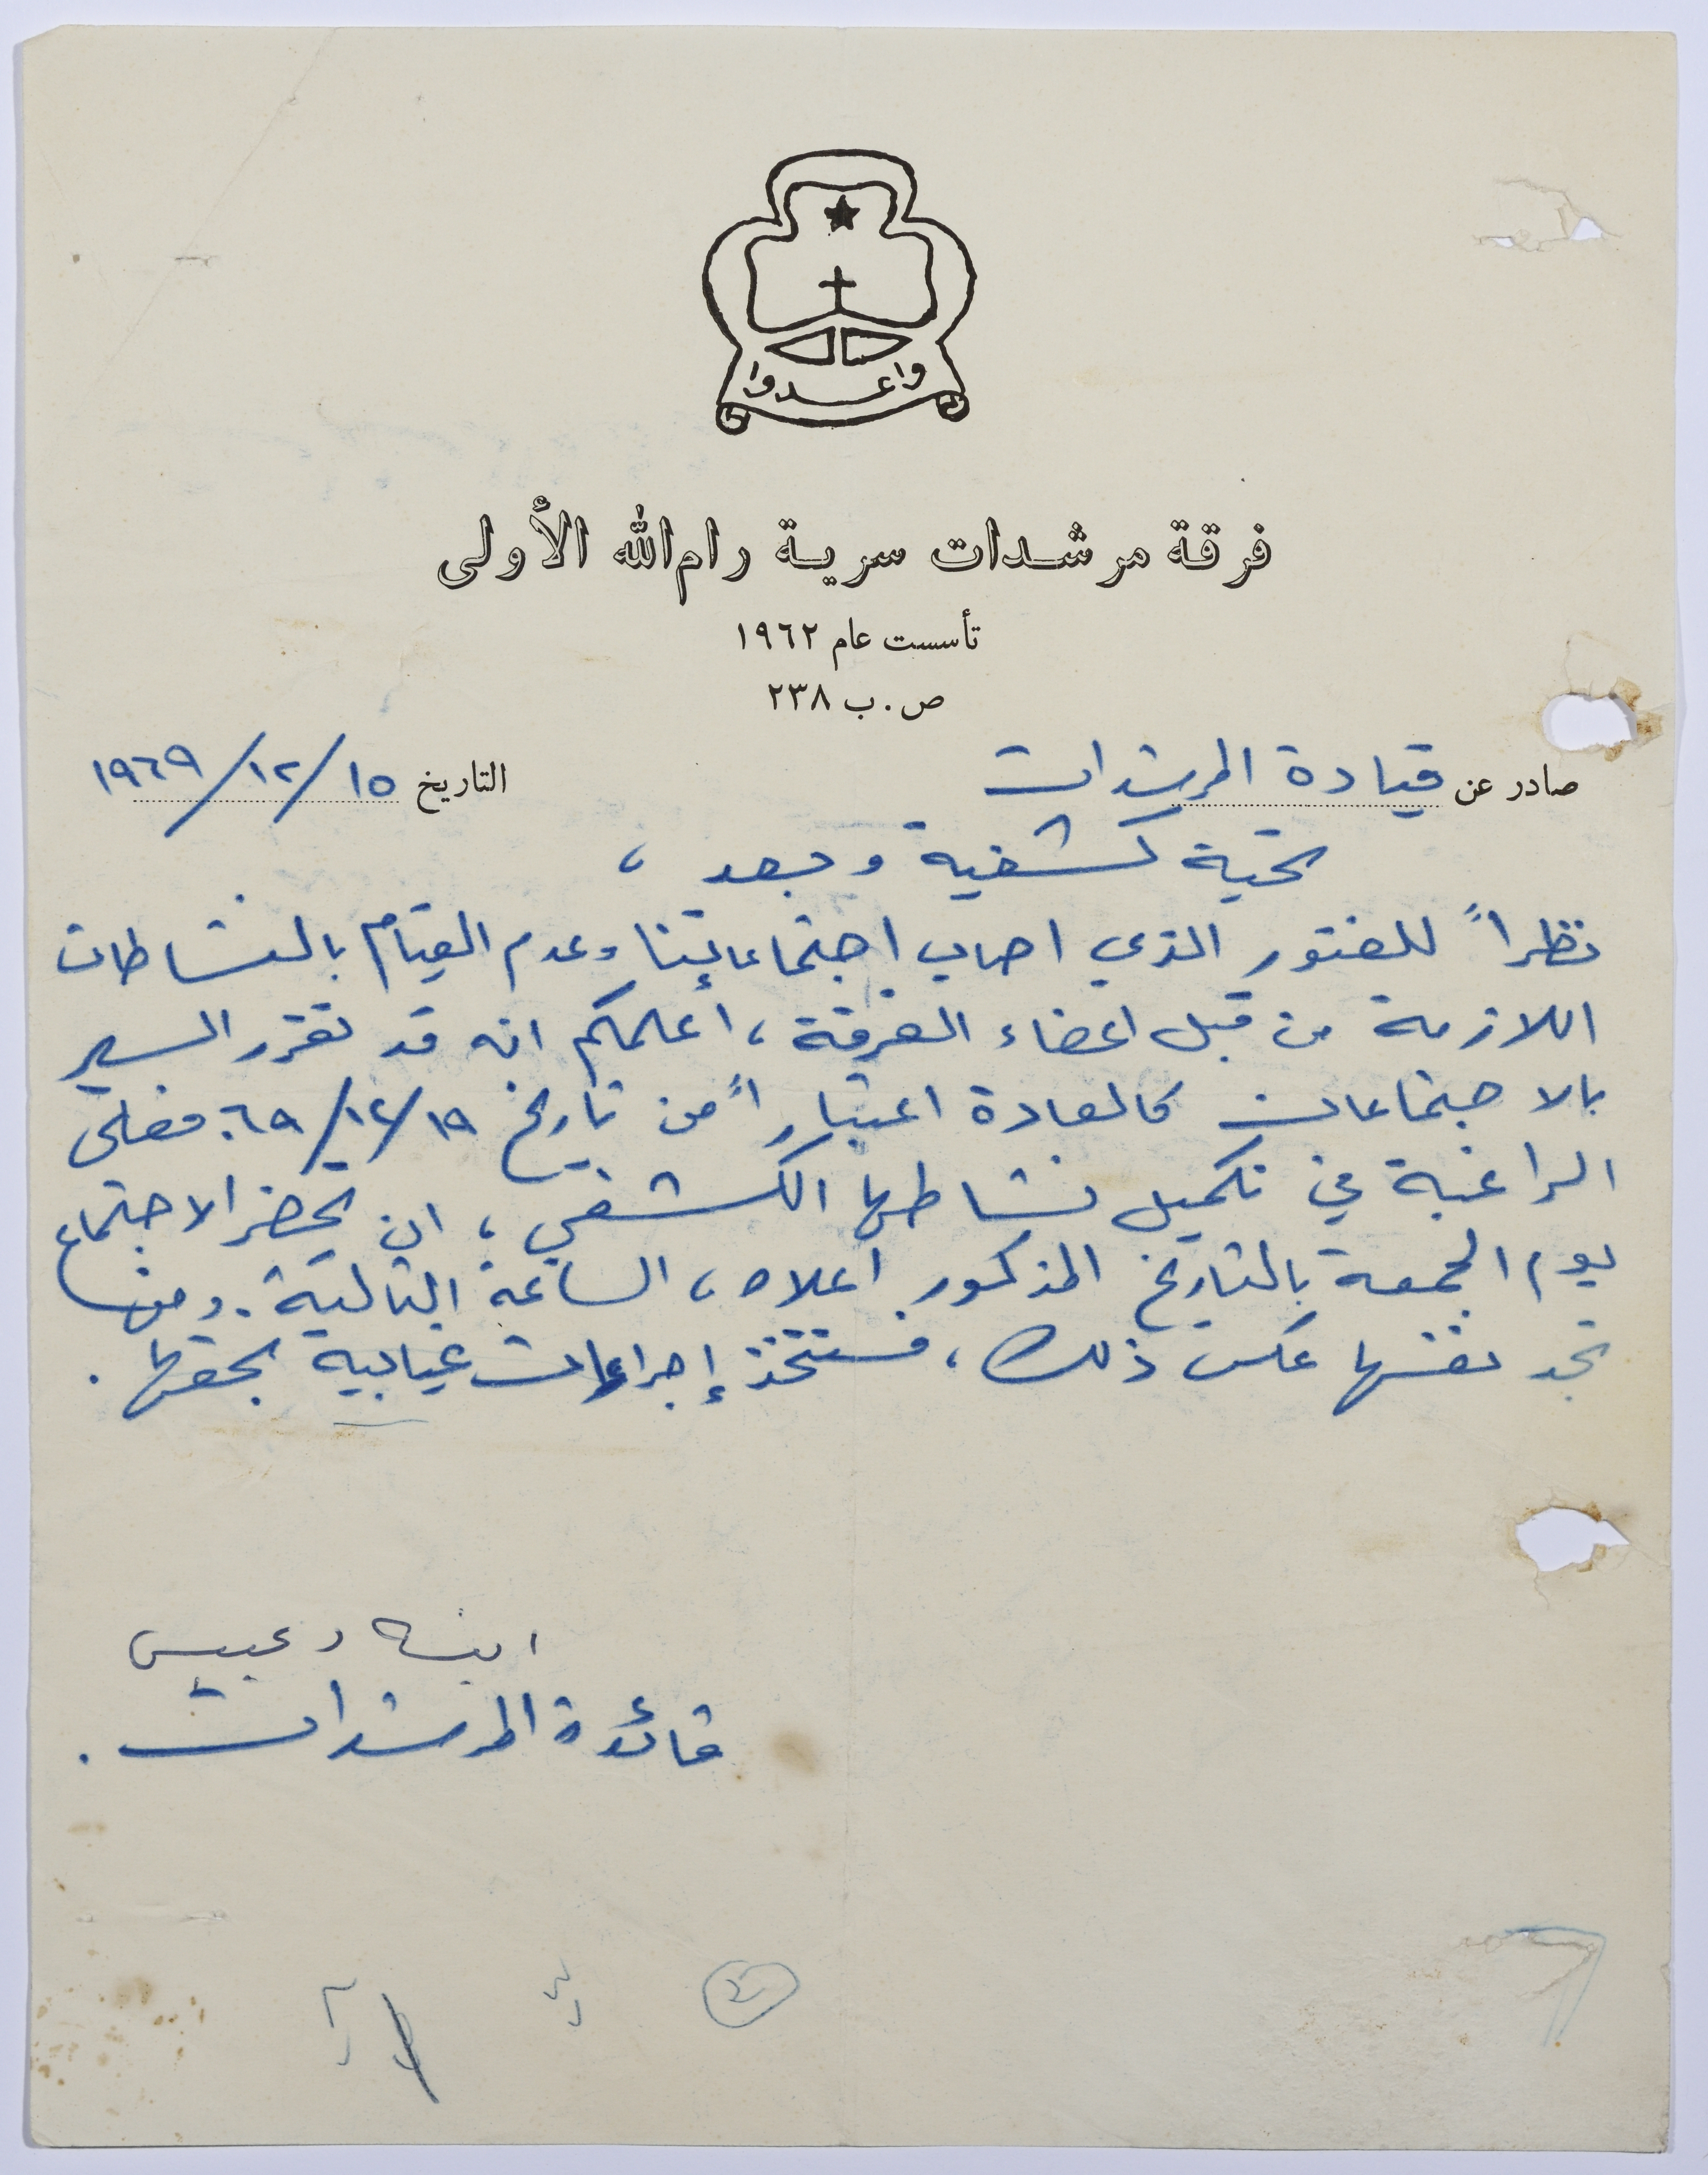 واعـدوا
فرقة مرشدات سرية رام الله الأولى
تأسست عام ١٩٦٢
ص.ب ٢٣٨
صادر عن قيادة المرشدات التاريخ ١٥/١٢/١٩٦٩
تحية كشفية وبعد ،
نظراً للفتور الذي اصاب اجتماعاتنا وعدم القيام بالنشاطات
اللازمة من قبل اعضاء الفرقة ، اعلمكم انه قد تقرر السير
بالاجتماعات كالعادة اعتباراً من تاريخ ١٩/١٢/٦٩. فعلى
الراغبة في تكميل نشاطها الكشفي ، ان تحضر الاجتماع
يوم الجمعة بالتاريخ المذكور اعلاه ، الساعة الثالثة . ومن
تجد نفسها عكس ذلك ، فستتخذ إجراءات غيابية بحقها .
دعيبس
قائدة المرشدات .